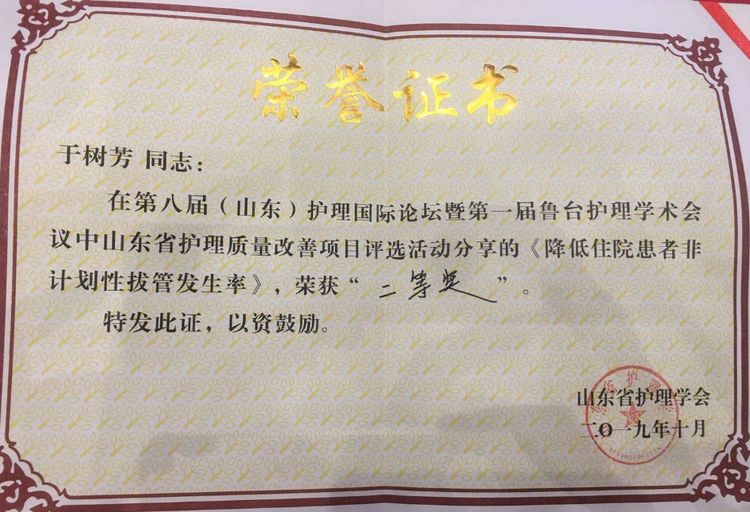 荣誉证书
于树芳 同志：
在第八届（山东）护理国际论坛暨第一届鲁台护理学术会
议中山东省护理质量改善项目评选活动分享的《降低住院患者非
计划性拔管发生率》，荣获“二等奖”。
特发此证，以资鼓励。
山东省护理学会
二〇一九年十月